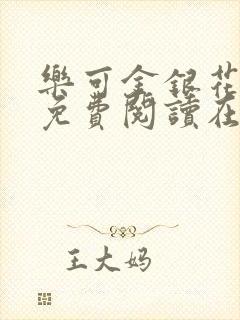 樂可金銀花
免費閱讀在
王大妈